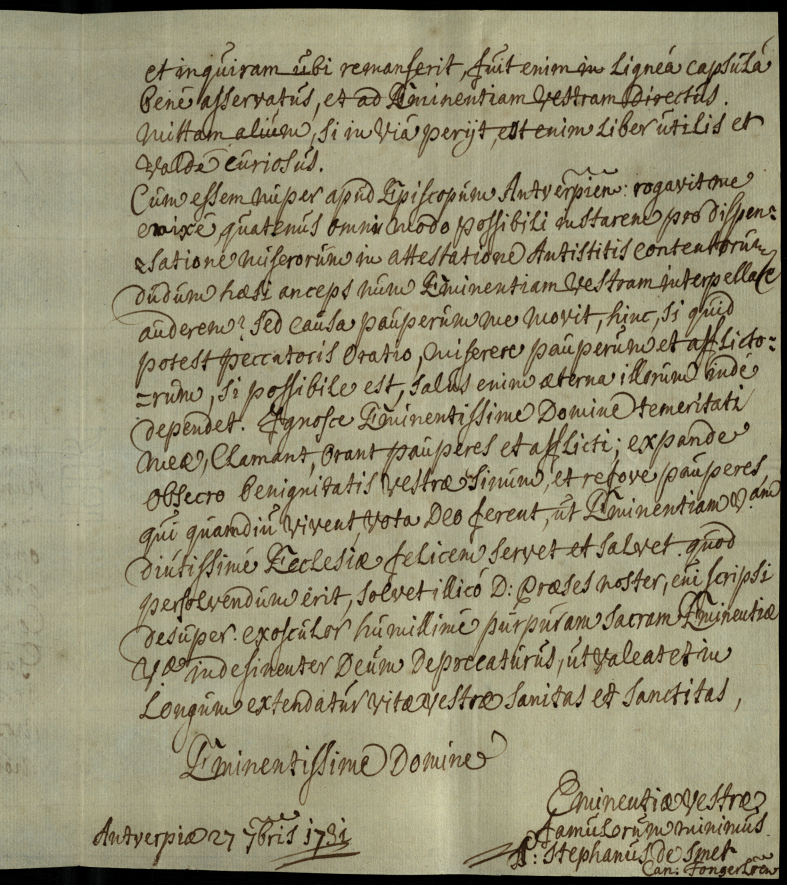 et inquiram ubi remanserit, fuit enim in Ligneâ capsulâ
bene asservatus, et ad Eminentiam Vestram Directus.
mittam alium, si in viâ perijt, est enim Liber utilis et
valde curiosus.
Cum essem nuper apud Episcopum Antverpien: rogavit me
enixe, quatenus omni modo possibili instarem pro dispen=
=satione miserorum in attestatione Antistitis contentorum
dudum hæsi anceps num Eminentiam Vestram interpellare
auderem? Sed causa pauperum me movit, hinc, si quid
potest peccatoris Oratio, miserere pauperum et afflicto=
=rum, si possibile est, salus enim æterna illorum inde
dependet. Ignosce Eminentissime Domine temeritati
meæ, Clamant, Orant pauperes et afflicti; expande
Obsecro benignitatis vestræ sinum, et refove pauperes,
qui quamdiu vivent, vota Deo ferent, ut Eminentiam V.am
diutissime Ecclesiæ felicem servet et salvet. quod
persolvendum erit, solvet illicò D: Præses noster, cui scripsi
desuper. exosculor humillime purpuram sacram Eminentiæ
Væ indesinenter Deum Deprecaturus, ut valeat et in
Longum extendatur vitæ vestræ Sanitas et Sanctitas,
Eminentissime Domine
Eminentiæ Vestræ
famulorum minimus
Antverpiæ 27 7bris 1731
F: Stephanus De Smet
Can: Tongerloen